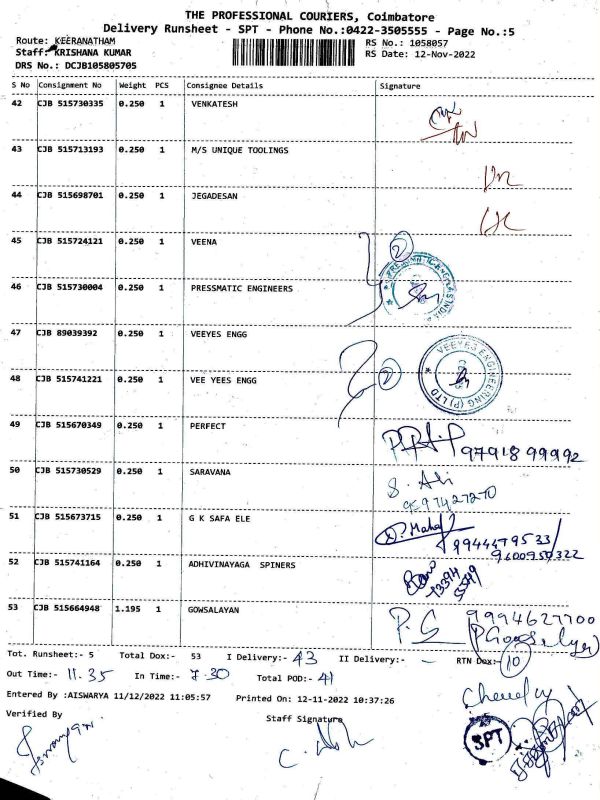 THE PROFESSIONAL COURIERS, Coimbatore
Delivery Runsheet - SPT - Phone No.:0422-3505555 - Page No.:5
Route: KEERANATHAM
RS No.: 1058057
Staff: KRISHANA KUMAR
RS Date: 12-Nov-2022
DRS No.: DCJB105805705
S No Consignment No Weight PCS Consignee Details Signature
42 CJB 515730335 0.250 1 VENKATESH
43 CJB 515713193 0.250 1 M/S UNIQUE TOOLINGS
44 CJB 515698701 0.250 1 JEGADESAN
45 CJB 515724121 0.250 1 VEENA 2
46 CJB 515730004 0.250 1 PRESSMATIC ENGINEERS
47 CJB 89039392 0.250 1 VEEYES ENGG
VEEYES ENGINEERING (P) LTD
48 CJB 515741221 0.250 1 VEE YEES ENGG 2
49 CJB 515670349 0.250 1 PERFECT 97918 99992
50 CJB 515730529 0.250 1 SARAVANA S. Ali
9597427270
51 CJB 515673715 0.250 1 G K SAFA ELE P. Maha
9944479533/
9600950322
52 CJB 515741164 0.250 1 ADHIVINAYAGA SPINERS
53 CJB 515664948 1.195 1 GOWSALAYAN P. S 9994627700
Tot. Runsheet:- 5 Total Dox:- 53 I Delivery:- 43 II Delivery:- - RTN Dox:- 10
Out Time:- 11.35 In Time:- 7.30 Total POD:- 41
Entered By :AISWARYA 11/12/2022 11:05:57 Printed On: 12-11-2022 10:37:26
Verified By Staff Signature
SPT